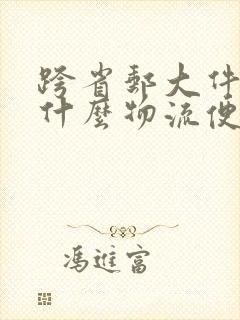 跨省郵大件
什麼物流便
馮進富